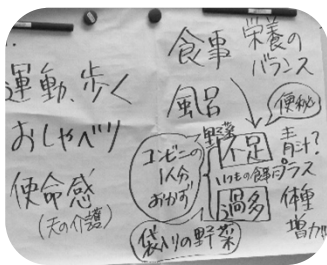 運動、歩く
おしゃべり
使命感
(夫の介護)
食事
栄養の
バランス
風呂
便秘
野菜
不足
青汁?
コンビニの
1人分
おかず
いつもの食事プラス
過多
体重
増加
袋入りの野菜